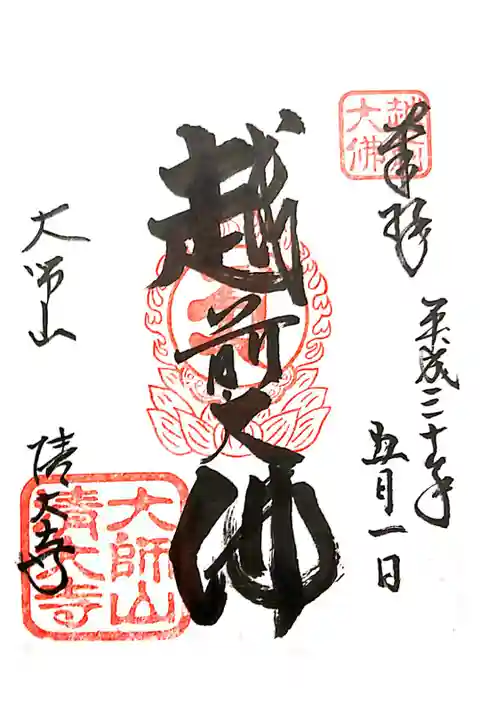 奉拝
平成三十年
五月一日
越前大佛
大師山
清大寺
越前大佛
大師山
清大寺